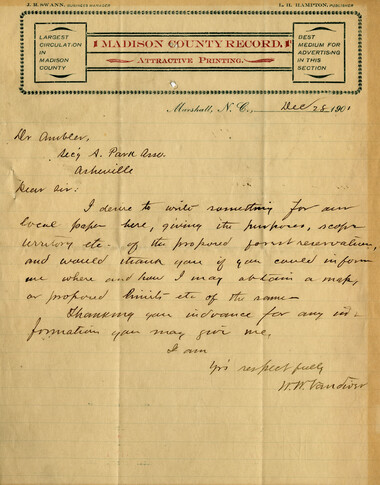 J. H. SWANN, BUSINESS MANAGER
L. H. HAMPTON, PUBLISHER
LARGEST
CIRCULATION
IN
MADISON
COUNTY
MADISON COUNTY RECORD,
ATTRACTIVE PRINTING.
BEST
MEDIUM FOR
ADVERTISING
IN THIS
SECTION
Marshall, N. C., Dec 28 1901
Dr Ambler,
Sec'y A. Park Asso.
Asheville
Dear Sir:
I desire to write something for our
local paper here, giving the purposes, scope
territory etc. of the proposed forest reservation,
and would thank you if you could inform
me where and how I may obtain a map,
or proposed limits etc of the same—
Thanking you in advance for any in-
formation you may give me,
I am
Yrs respectfully
W. W. Vandiver